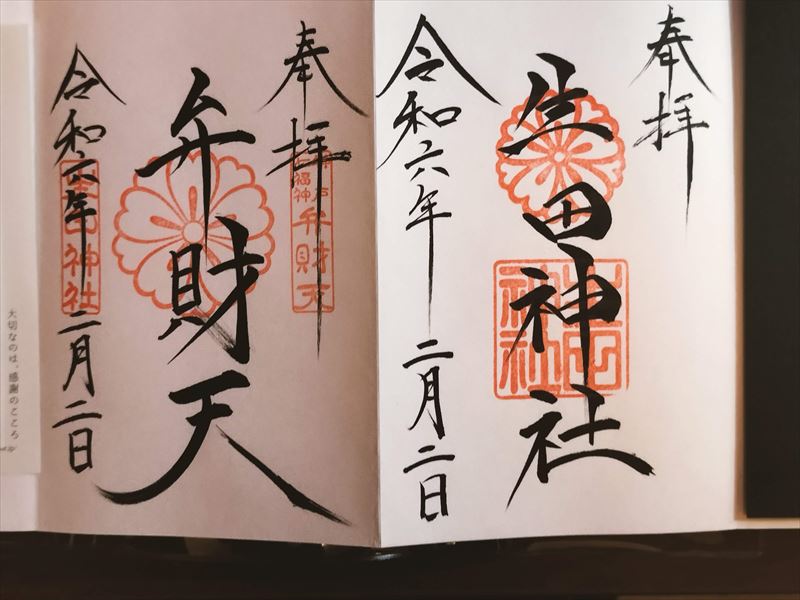 奉拝
生田神社
生田神社
令和六年 二月二日
奉拝
神戸
七福神
弁財天
弁財天
令和六年 二月二日
生田神社
大切なのは、感謝のこころ